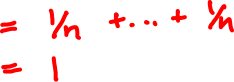 = 1/n +...+ 1/n
= 1